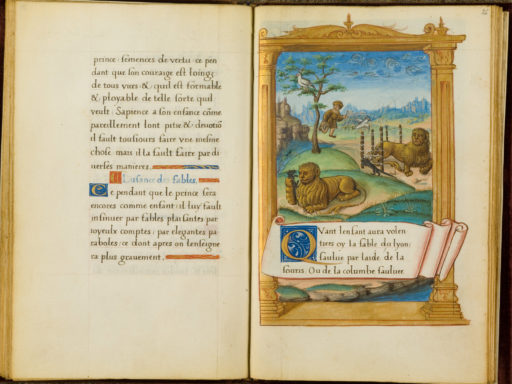 prince semences de vertu ce pen
dant que son couraige est loing
de tous vices & quil est formable
& ployable de telle sorte quil
veult Sapience a son enfance cõme
pareillement sont pitie & deuotiõ
il fault tousiours faire vne mesme
chose mais il la fault faire par di
uerses manieres.
Lusance des fables.
Ce pendant que le prince sera
encores comme enfant: il luy fault
insinuer par fables plaisantes par
ioyeulx comptes: par elegantes pa
raboles: ce dont apres on lenseigne
ra plus grauement.
QVant lenfant aura volen
tiers oy la fable du lyon:
saulue par laide de la
souris. Ou de la columbe sauluee